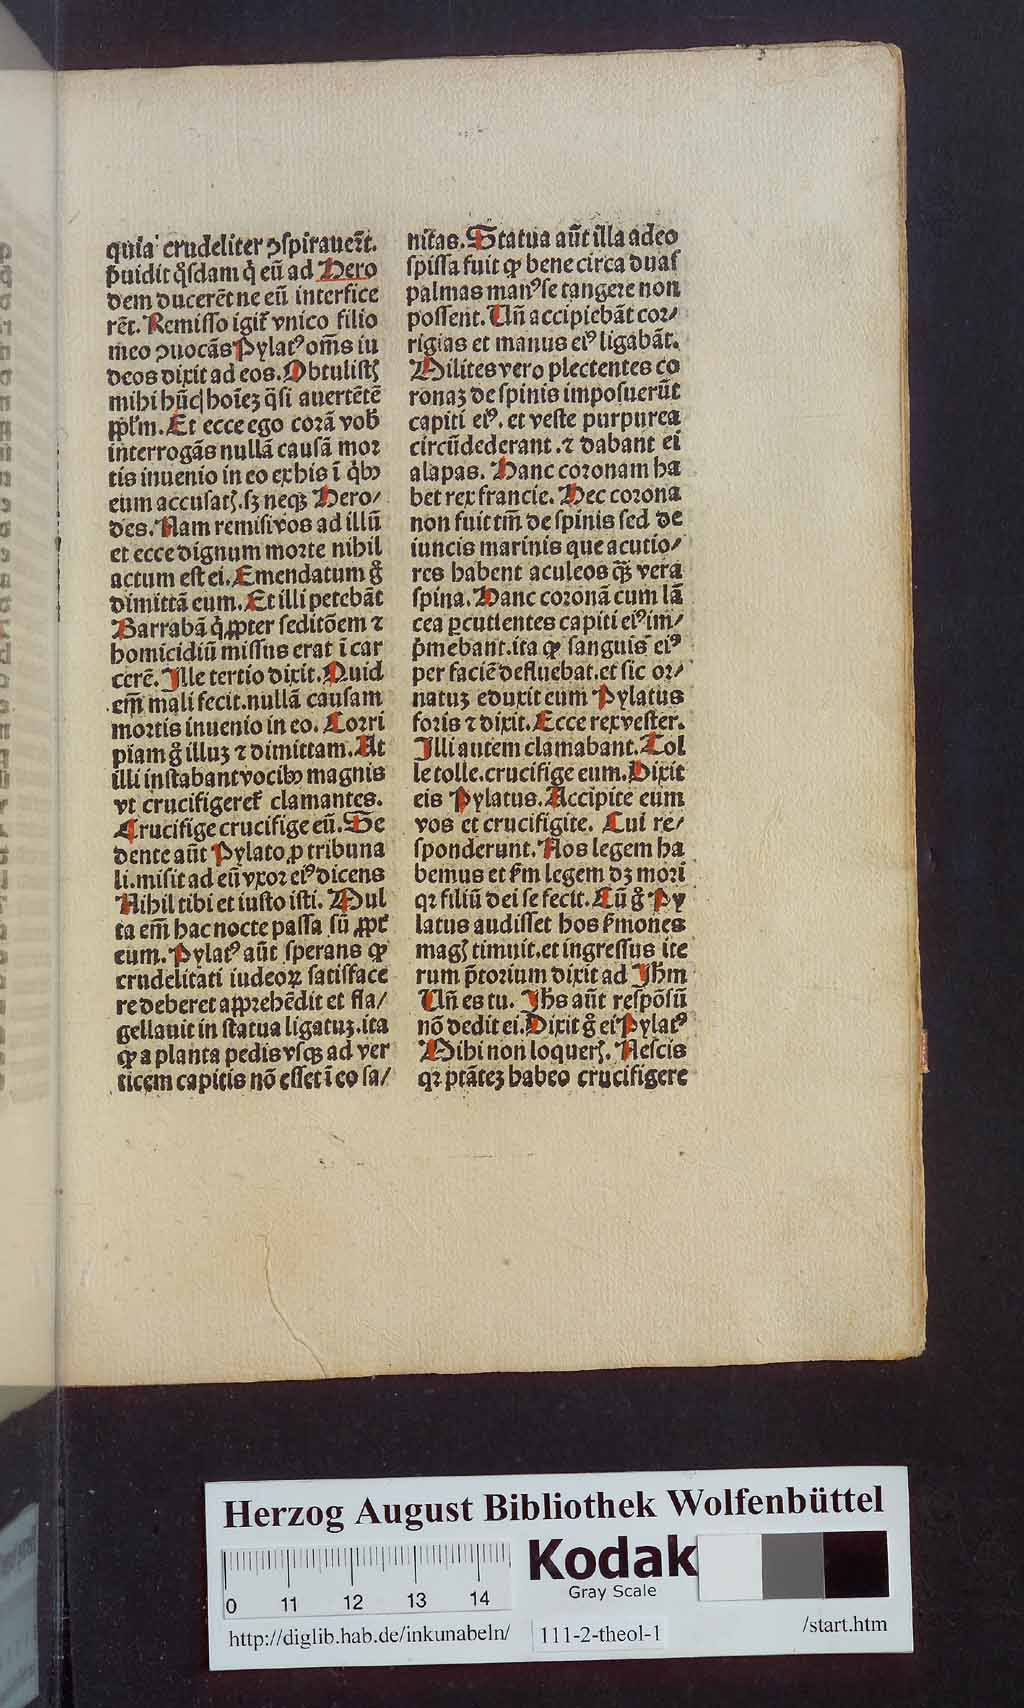 quia crudeliter ꝯſpirauer̄t.
p̄uidit q̊ſdam q̇ eū ad Hero
dem ducerēt ne eū interfice
rēt. Remiſſo igit̄ vnico filio
meo ꝯuocās Pylatꝰ om̄s iu
deos dixit ad eos. Obtuliſtꝭ
mihi hūc hoīeꝫ q̄ſi auertētē
pp̄l'm. Et ecce ego corā vob̄
interrogās nullā cauſā mor
tis inuenio in eo ex his ī q̇bꝰ
eum accuſatꝭ. ſꝫ neqꝫ Hero/
des. Nam remiſi vos ad illū
et ecce dignum morte nihil
actum eſt ei. Emendatum g̊
dimittā eum. Et illi petebāt
Barrabā q̇ ꝓpter ſeditōem ⁊
homicidiū miſſus erat ī car
cerē. Ille tertio dixit. Quid
em̄ mali fecit. nullā cauſam
mortis inuenio in eo. Corri
piam g̊ illuꝫ ⁊ dimittam. At
illi inſtabant vocibꝰ magnis
vt crucifigeret̄ clamantes.
Crucifige crucifige eū. Se
dente aūt Pylato ꝓ tribuna
li. miſit ad eū vxor eiꝰ dicens
Nihil tibi et iuſto iſti. Mul
ta em̄ hac nocte paſſa ſū ꝓpt̄
eum. Pylatꝰ aūt ſperans ꝙ
crudelitati iudeoꝝ ſatiſface
re deberet apprehēdit et fla/
gellauit in ſtatua ligatuꝫ. ita
ꝙ a planta pedis vſqꝫ ad ver
ticem capitis nō eſſet ī eo ſa/
nitas. Statua aūt illa adeo
ſpiſſa fuit ꝙ bene circa duaſ
palmas manꝰ ſe tangere non
poſſent. Vn̄ accipiebāt cor/
rigias et manus eiꝰ ligabāt.
Milites vero plectentes co
ronaꝫ de ſpinis impoſuerūt
capiti eiꝰ. et veſte purpurea
circūdederant. ⁊ dabant ei
alapas. Hanc coronam ha
bet rex francie. Hec corona
non fuit tm̄ de ſpinis ſed de
iuncis marinis que acutio/
res habent aculeos qꝫ vera
ſpina. Hanc coronā cum lā
cea ꝑcutientes capiti eiꝰ im/
p̄mebant. ita ꝙ ſanguis eiꝰ
per faciē defluebat. et ſic or/
natuꝫ eduxit eum Pylatus
foris ⁊ dixit. Ecce rex veſter.
Illi autem clamabant. Tol
le tolle. crucifige eum. Dixit
eis Pylatus. Accipite eum
vos et crucifigite. Cui re/
ſponderunt. Nos legem ha
bemus et ẜm legem dꝫ mori
qꝛ filiū dei ſe fecit. Cū g̊ Py
latus audiſſet hos ẜmones
magꝭ timuit. et ingreſſus ite
rum p̄torium dixit ad Jhm̄
Vn̄ es tu. Jhs̄ aūt reſpōſū
nō dedit ei. Dixit g̊ ei Pylatꝰ
Mihi non loquerꝭ. Neſcis
qꝛ ptātēꝫ habeo crucifigere
Herzog August Bibliothek Wolfenbüttel
Kodak
Gray Scale
0 11 12 13 14
http://diglib.hab.de/inkunabeln/ 111-2-theol-1 /start.htm